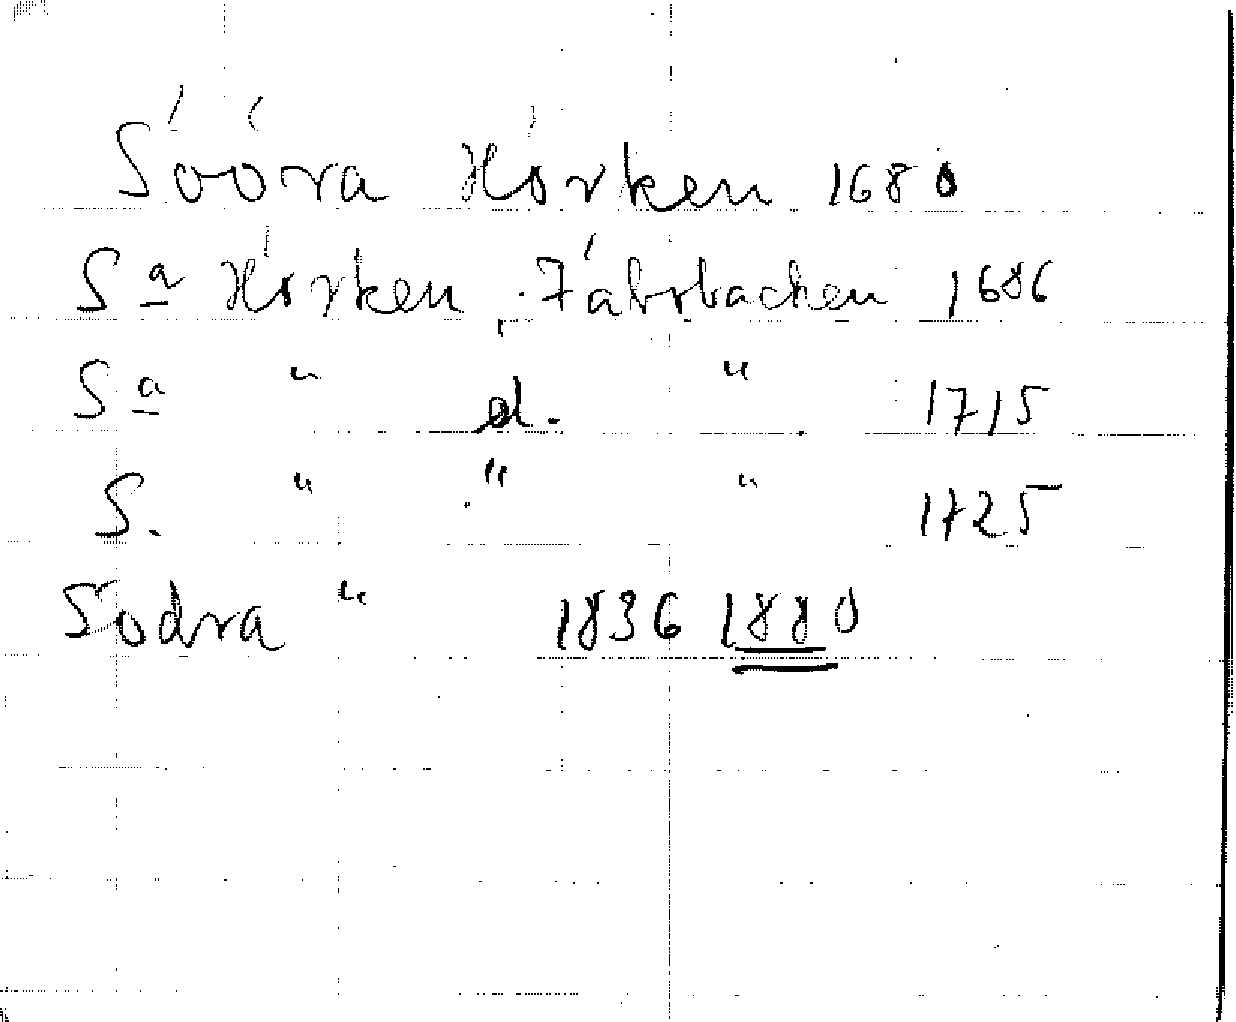 Södra Hörken 1680
Sa Hörken, Fäbobacken 1686
Sa " d. " 1715
S. " " " 1725
Södra " 1836 1880